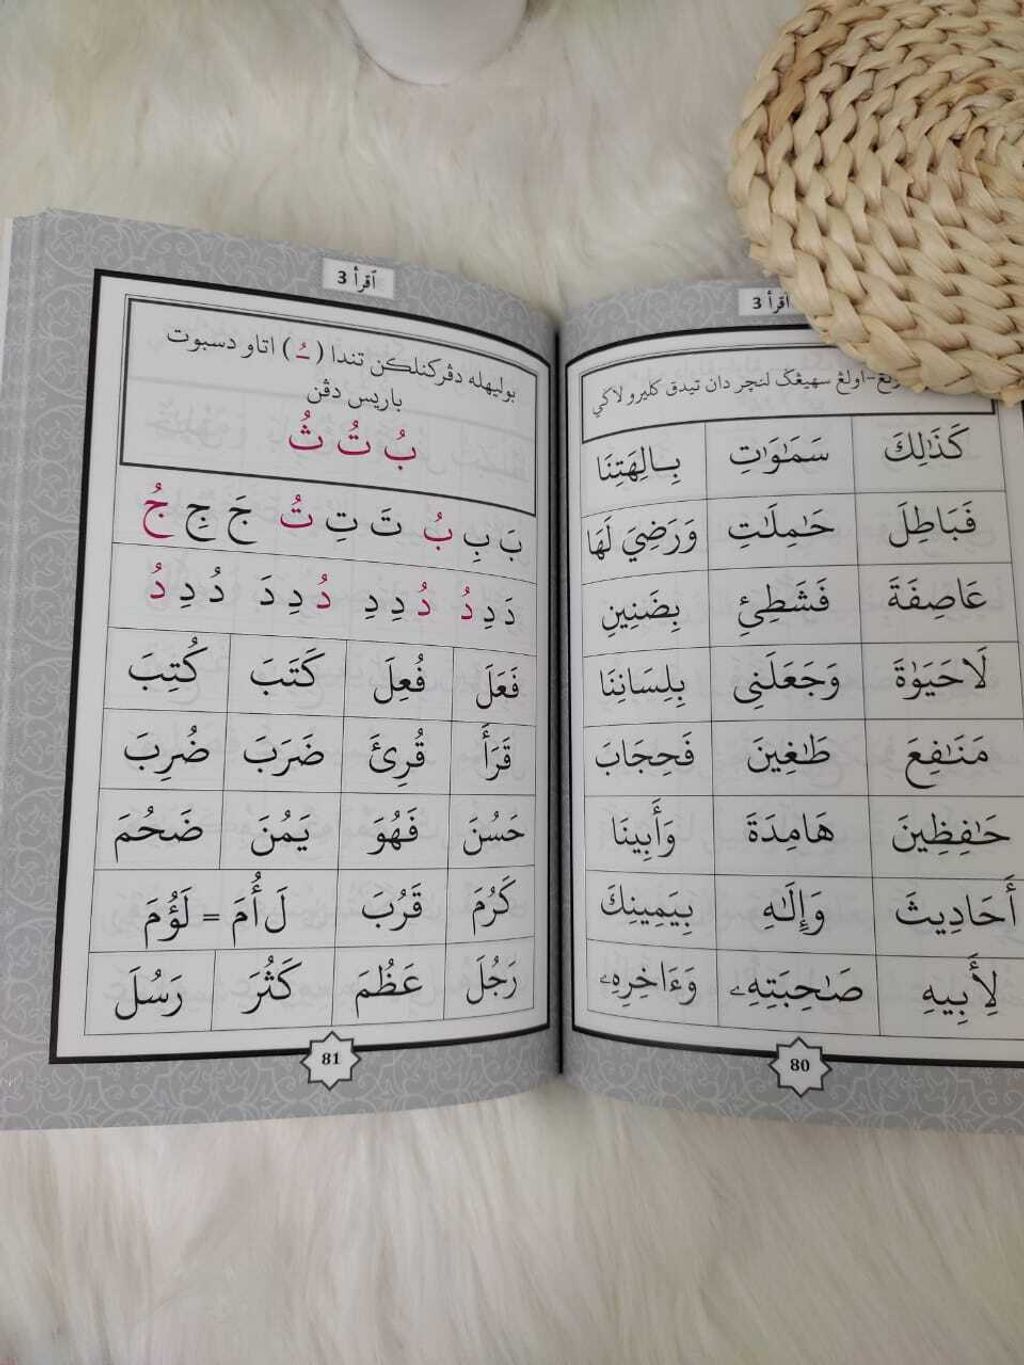 اقرأ 3
اولڠ سهيڠݢ لنچر دان تيدق كليرو لاݢي
كَذَٰلِكَ سَمَٰوَٰتِ بِـَٔالِهَتِنَا
فَبَاطِلَ حَٰمِلَٰتِ وَرَضِيَ لَهَا
عَاصِفَةَ فَشَطِئِ بِضَنِينِ
لَاحَيَوٰةَ وَجَعَلَنِى بِلِسَانِنَا
مَنَٰفِعَ طَٰغِينَ فَحِجَابَ
حَٰفِظِينَ هَامِدَةَ وَأَبِينَا
أَحَادِيثَ وَإِلَٰهِ بِيَمِينِكَ
لِأَبِيهِ صَٰحِبَتِهِۦ وَءَاخِرِهِۦ
80
اقرأ 3
بوليهله دڤركنلكن تندا (ـُـ) اتاو دسبوت
باريس دڤن
بُ تُ ثُ
بَ بِ بُ تَ تِ تُ جَ جِ جُ
دَ دِ دُ دُ دِ دِ دُ دِ دَ دُ دِ دُ
فَعَلَ فُعِلَ كَتَبَ كُتِبَ
قَرَأَ قُرِئَ ضَرَبَ ضُرِبَ
حَسُنَ فَهُوَ يَمُنَ ضَحُمَ
كَرُمَ قَرُبَ لَ أُمَ = لَؤُمَ
رَجُلَ عَظُمَ كَثُرَ رَسُلَ
81